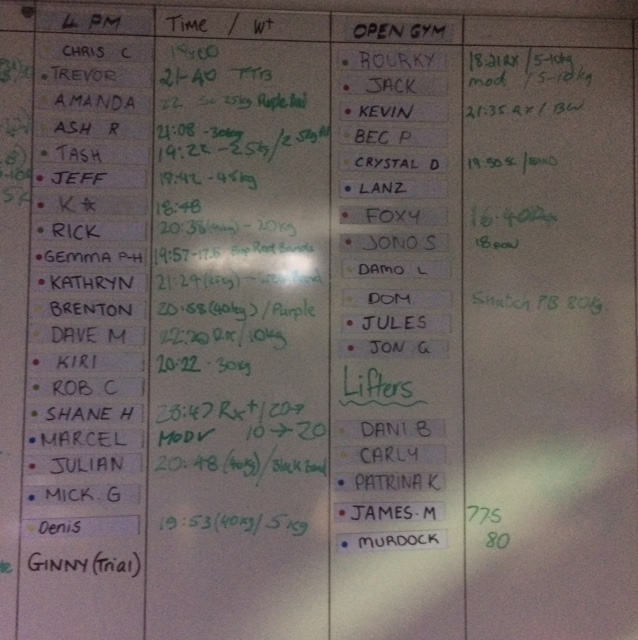 4 PM Time / Wt
CHRIS C
TREVOR 21-40 TTB
AMANDA 22
ASH R 21:08 - 30kg
TASH 19:22 - 25kg
JEFF 19:42 - 45kg
K* 18:48
RICK 20:38 - 20kg
GEMMA P-H 19:57 - 17.5
KATHRYN 21:24
BRENTON 20:58 (40kg) / Purple
DAVE M 22:20 RX / 10kg
KIRI 20:22 - 30kg
ROB C
SHANE H 23:47 Rx+ / 20→
MARCEL MODV 10 → 20
JULIAN 20:48 (40kg) / Black Band
MICK G
Denis 19:53 (40kg) / 5kg
GINNY (Trial)
OPEN GYM
ROURKY 18:21 RX / 5-10kg
JACK mod / 5-10kg
KEVIN 21:35 RX / BW
BEC P
CRYSTAL D
LANZ
FOXY 16:40 Rx
JONO S
DAMO L
DOM Snatch PB 80kg
JULES
JON G
Lifters
DANI B
CARLY
PATRINA K
JAMES M 775
MURDOCK 80